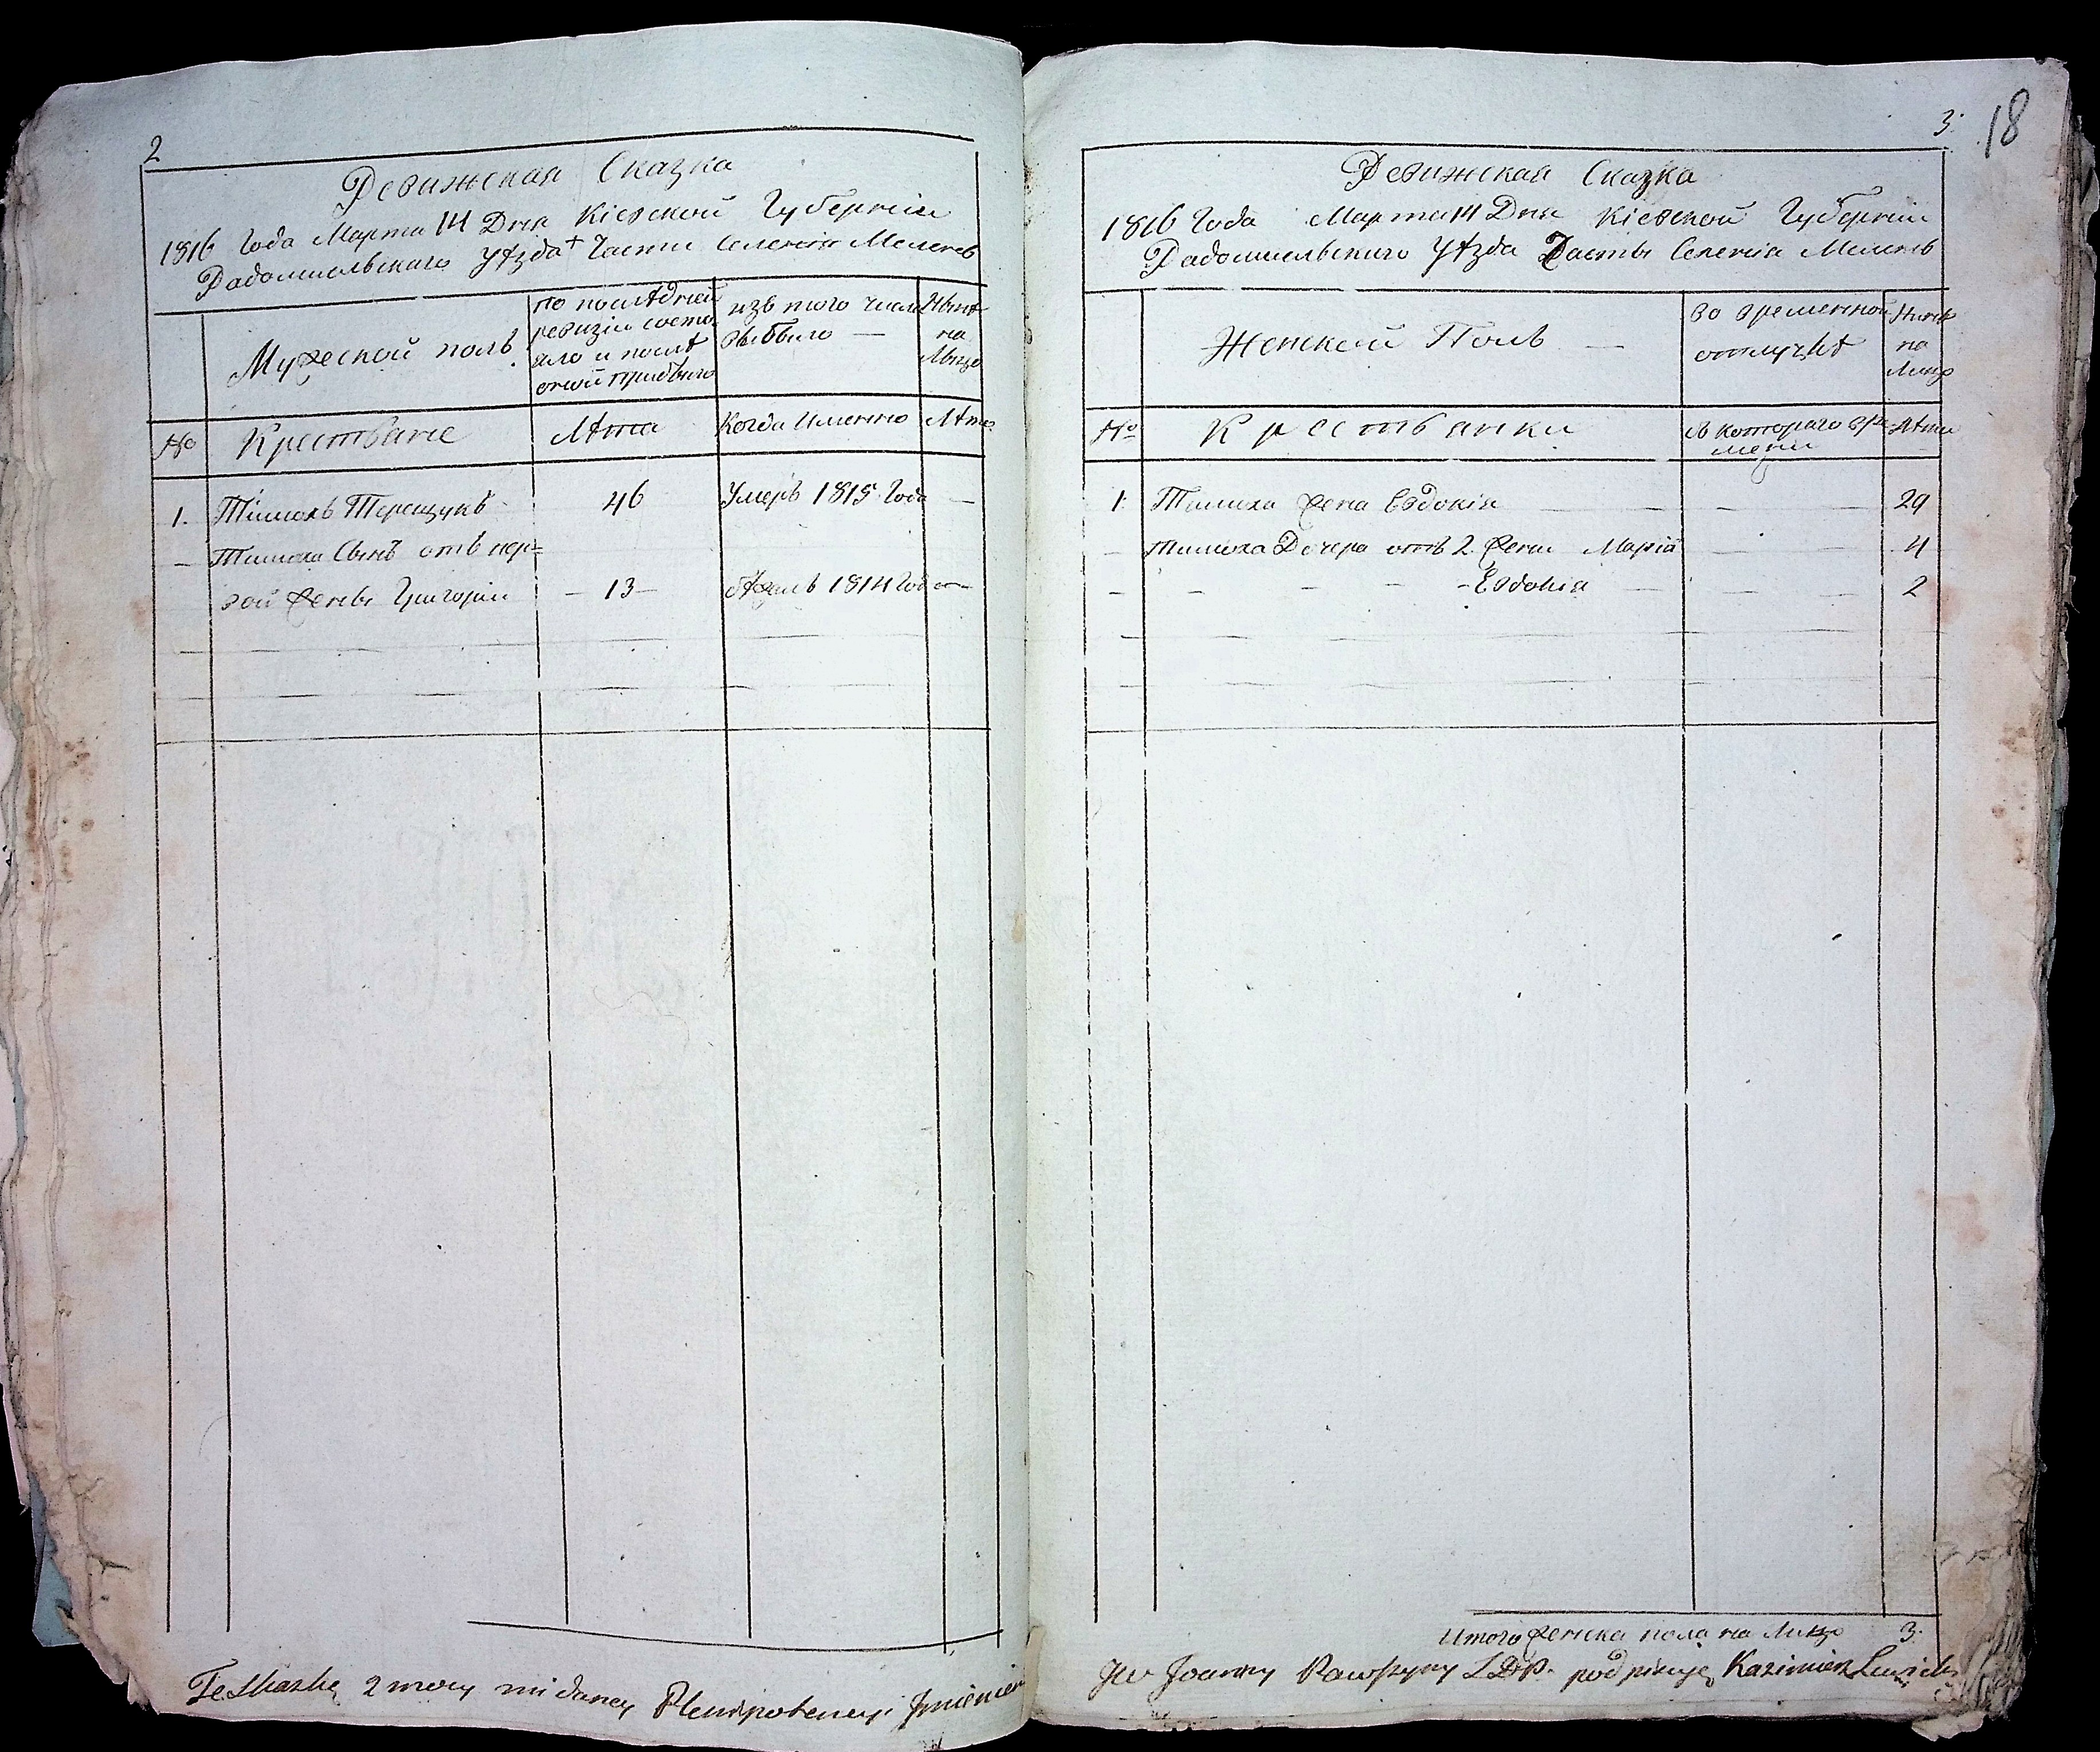 2
Ревижская Сказка
1816 Года Марта 14 Дня Кіевской Губерніи
Радомысльскаго Уѣзда Части Селенія Меленѣ
Мужеской полъ
по послѣдней
ревизіи состо
яло и послѣ
оной прибыло
изъ того числа
выбыло —
Нынѣ
на
Лицо
№ Крестьяне Лѣта Когда Именно Лѣта
1. Тимохъ Терещукъ 46 Умеръ 1815 Года —
— Тимоха Сынъ отъ пер=
вой жены Григорій — 13 — бѣжалъ 1814 Года —
Te Skaskę z mocy mi daney Plenipotencyi Jmieniem
3. 18
Ревижская Сказка
1816 Года Марта 14 Дня Кіевской Губерніи
Радомысльскаго Уѣзда Часты Селенія Меленѣ
Женской Полъ —
Во временной
отлучкѣ
Нынѣ
на
Лицо
№ Крестьянки съ котораго вре Лѣта
мени
1. Тимоха жена Евдокія — — — 29
— Тимоха Дочера отъ 2. жены Марія — 4
— — — — — Евдокія — — 2
Итого женска пола на Лицо 3.
JW Joanny podpisuję Kazimierz